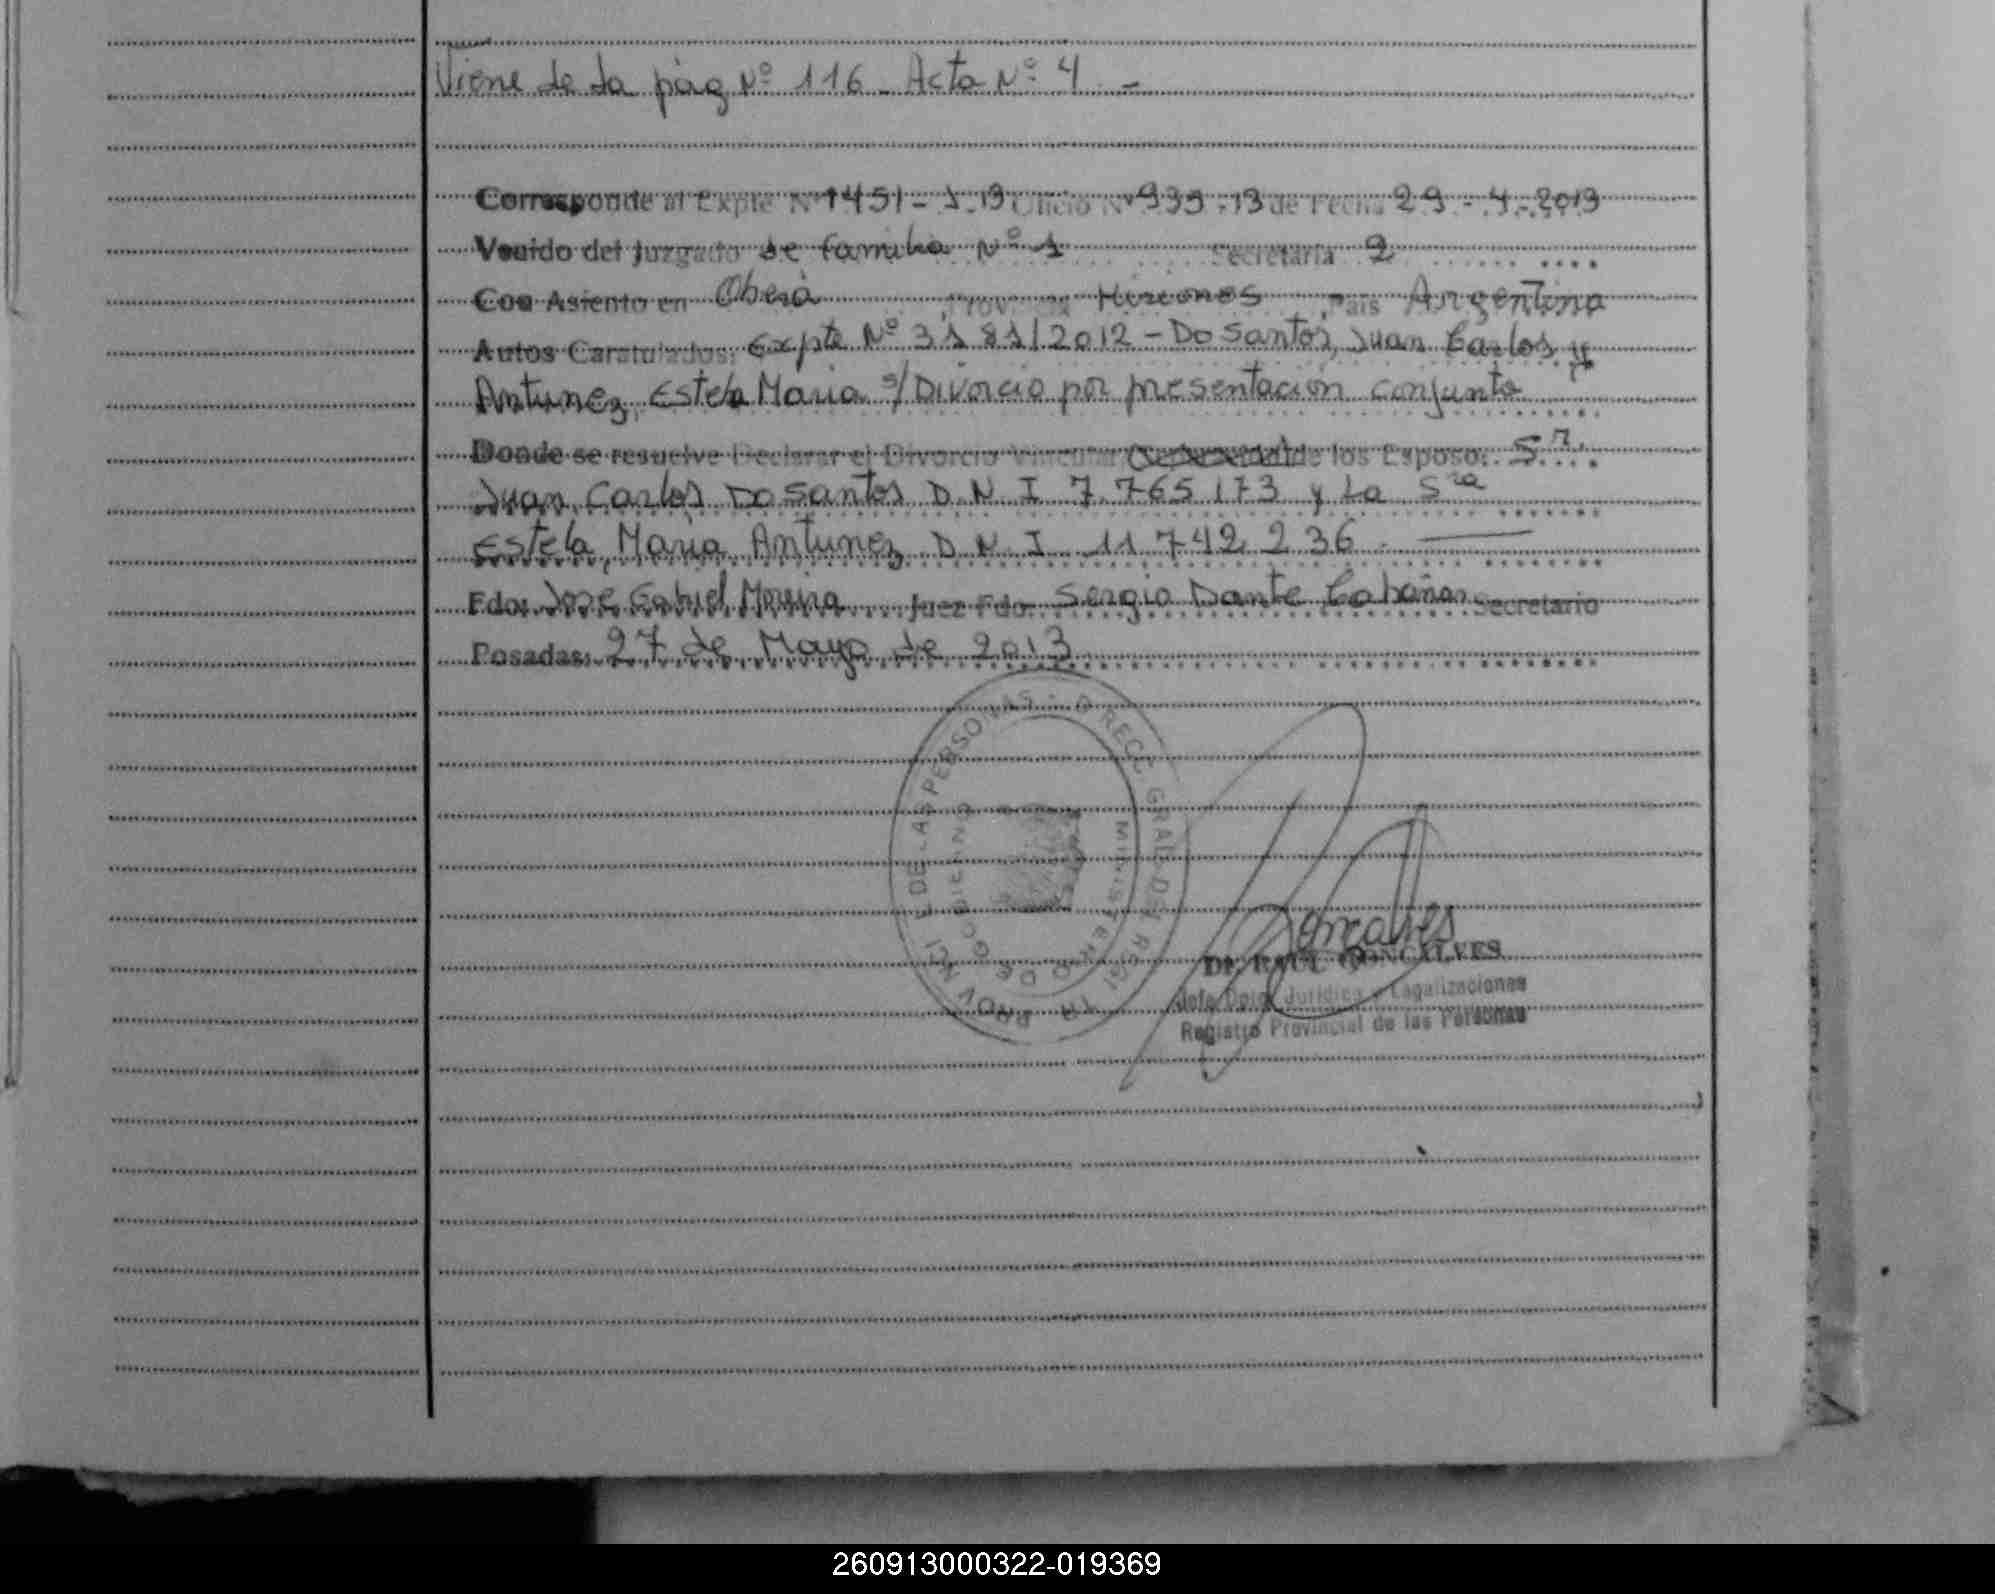 Viene de la pág Nº 116 - Acta Nº 4 -
Corresponde al Expte Nº 1451 - J - 13 Oficio Nº 939 - 13 de Fecha 29 - 4 - 2013
Venido del Juzgado de Familia Nº 1 Secretaria 2
Con Asiento en Oberá Provincia Misiones País Argentina
Autos Caratulados: Expte Nº 3181/2012 - Do Santos, Juan Carlos y
Antunez, Estela Maria s/ Divorcio por presentación conjunta
Donde se resuelve Declarar el Divorcio Vincular de los Esposo: Sr.
Juan Carlos Do Santos D.N.I 7.765173 y La Sra
Estela, Maria Antunez D.N.I 11 742 236.
Fdo: Jose Gabriel Moreira Juez Fdo. Sergio Dante Cabañas Secretario
Posadas: 27 de Mayo de 2013
DIRECC. GRAL. DEL REGISTRO PROV. CIVIL DE LAS PERSONAS
MINISTERIO DE GOBIERNO
Goncalves
Dr. RAUL GONCALVES
Jefe Dpto. Jurídico y Legalizaciones
Registro Provincial de las Personas
260913000322-019369